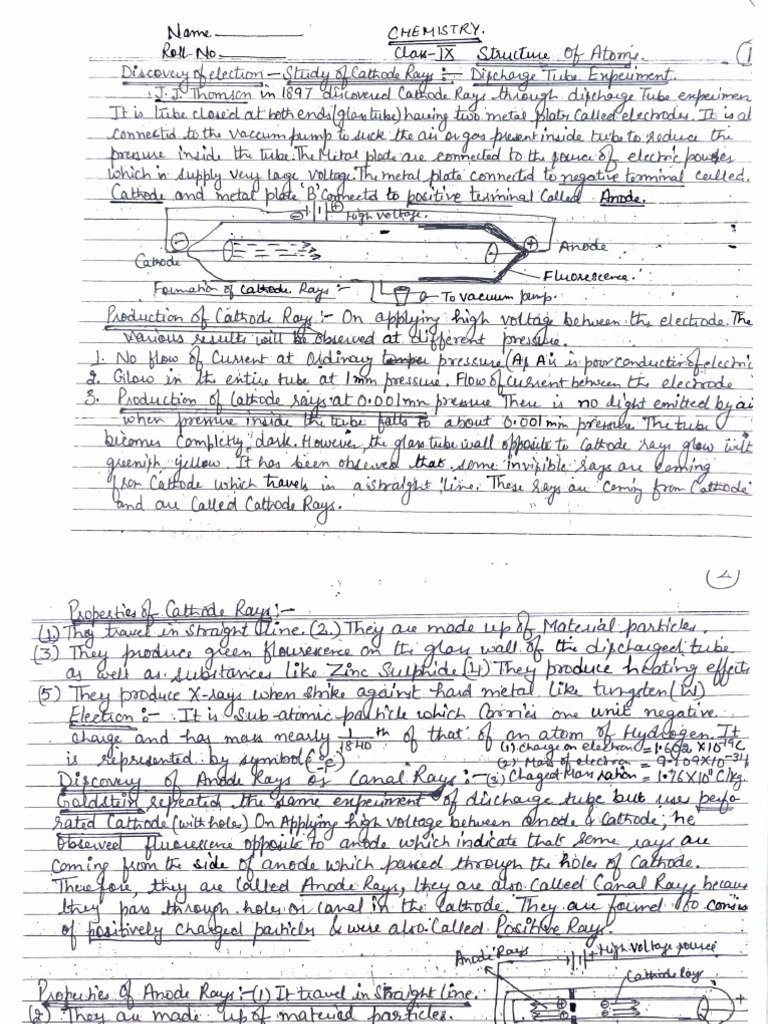 Name
CHEMISTRY.
Roll-No.
Class-IX Structure of Atoms. (1
Discovery of election - Study of Cathode Rays :- Discharge Tube Expeument.
J.J. Thomson in 1897 discovered Cathode Rays through discharge Tube experimen
It is 1 tube closed at both ends (glass tube) having two metal plates called electrodes. It is al
connected to the vaccum pump to suck the air or gas present inside tube to reduce the
pressure inside the tube. The Metal plate are connected to the source of electric powers
which is supply very large voltage. The metal plate connected to negative terminal called.
Cathode and metal plate 'B' Connectd to positive terminal Called Anode.
⊖ ⊕ High voltage.
Cathode - - + Anode
Fluorescence.
Formation of Cathode Rays :- To vacuum pump.
Production of Cathode Rays :- On applying high voltage between the electrode. The
Various results will be observed at different pressure.
1. No flow of Current at Ordinary pressure (As Air is poor conductor of electric
2. Glow in the entire tube at 1 mm pressure. Flow of current between the electrode
3. Production of Cathode rays at 0.001 mm pressure There is no light emitted by ai
when pressure inside the tube falls to about 0.001 mm pressure. The tube
becomes completly dark. However, the glass tube wall opposite to Cathode rays glow with
greenish yellow. It has been observed that some invisible rays are coming
from Cathode which travels in a straight line. These rays are coming from Cathode
and are Called Cathode Rays.
(2)
Properties of Cathode Rays :-
(1) They travel in straight line. (2.) They are made up of Material particles.
(3) They produce green flourescence on the glass wall of the discharged tube
as well as substances like Zinc Sulphide (4) They produce heating effects
(5) They produce X-rays when strike against hard metal like tungsten (W)
Election :- It is Sub-atomic particle which Carries one unit negative
charge and has mass nearly 1/1840 th of that of an atom of Hydrogen. It
is represented by symbol (1) Charge on electron = 1.602 X10-19C
(2) Mass of electron = 9.109X10-31
Discovery of Anode Rays or Canal Rays :- (3) Charged Mass ration = 1.76X10 C/kg.
Goldstein repeated the same experiment of discharge tube but use perfo
rated Cathode (with holes) On Applying high voltage between anode & Cathode, he
observed fluorescence opposite to anode which indicate that some rays are
Coming from the side of anode which passed through the holes of Cathode.
Therefore, they are called Anode Rays, they are also Called Canal Rays becaus
they pass through holes or canal in the cathode. They are found to consis
of positively charged particles & were also Called Positive Rays.
Anode Rays + High voltage source
Cathode Ray
+
Properties of Anode Rays :- (1) It travel in straight line.
(2) They are made up of material particles.